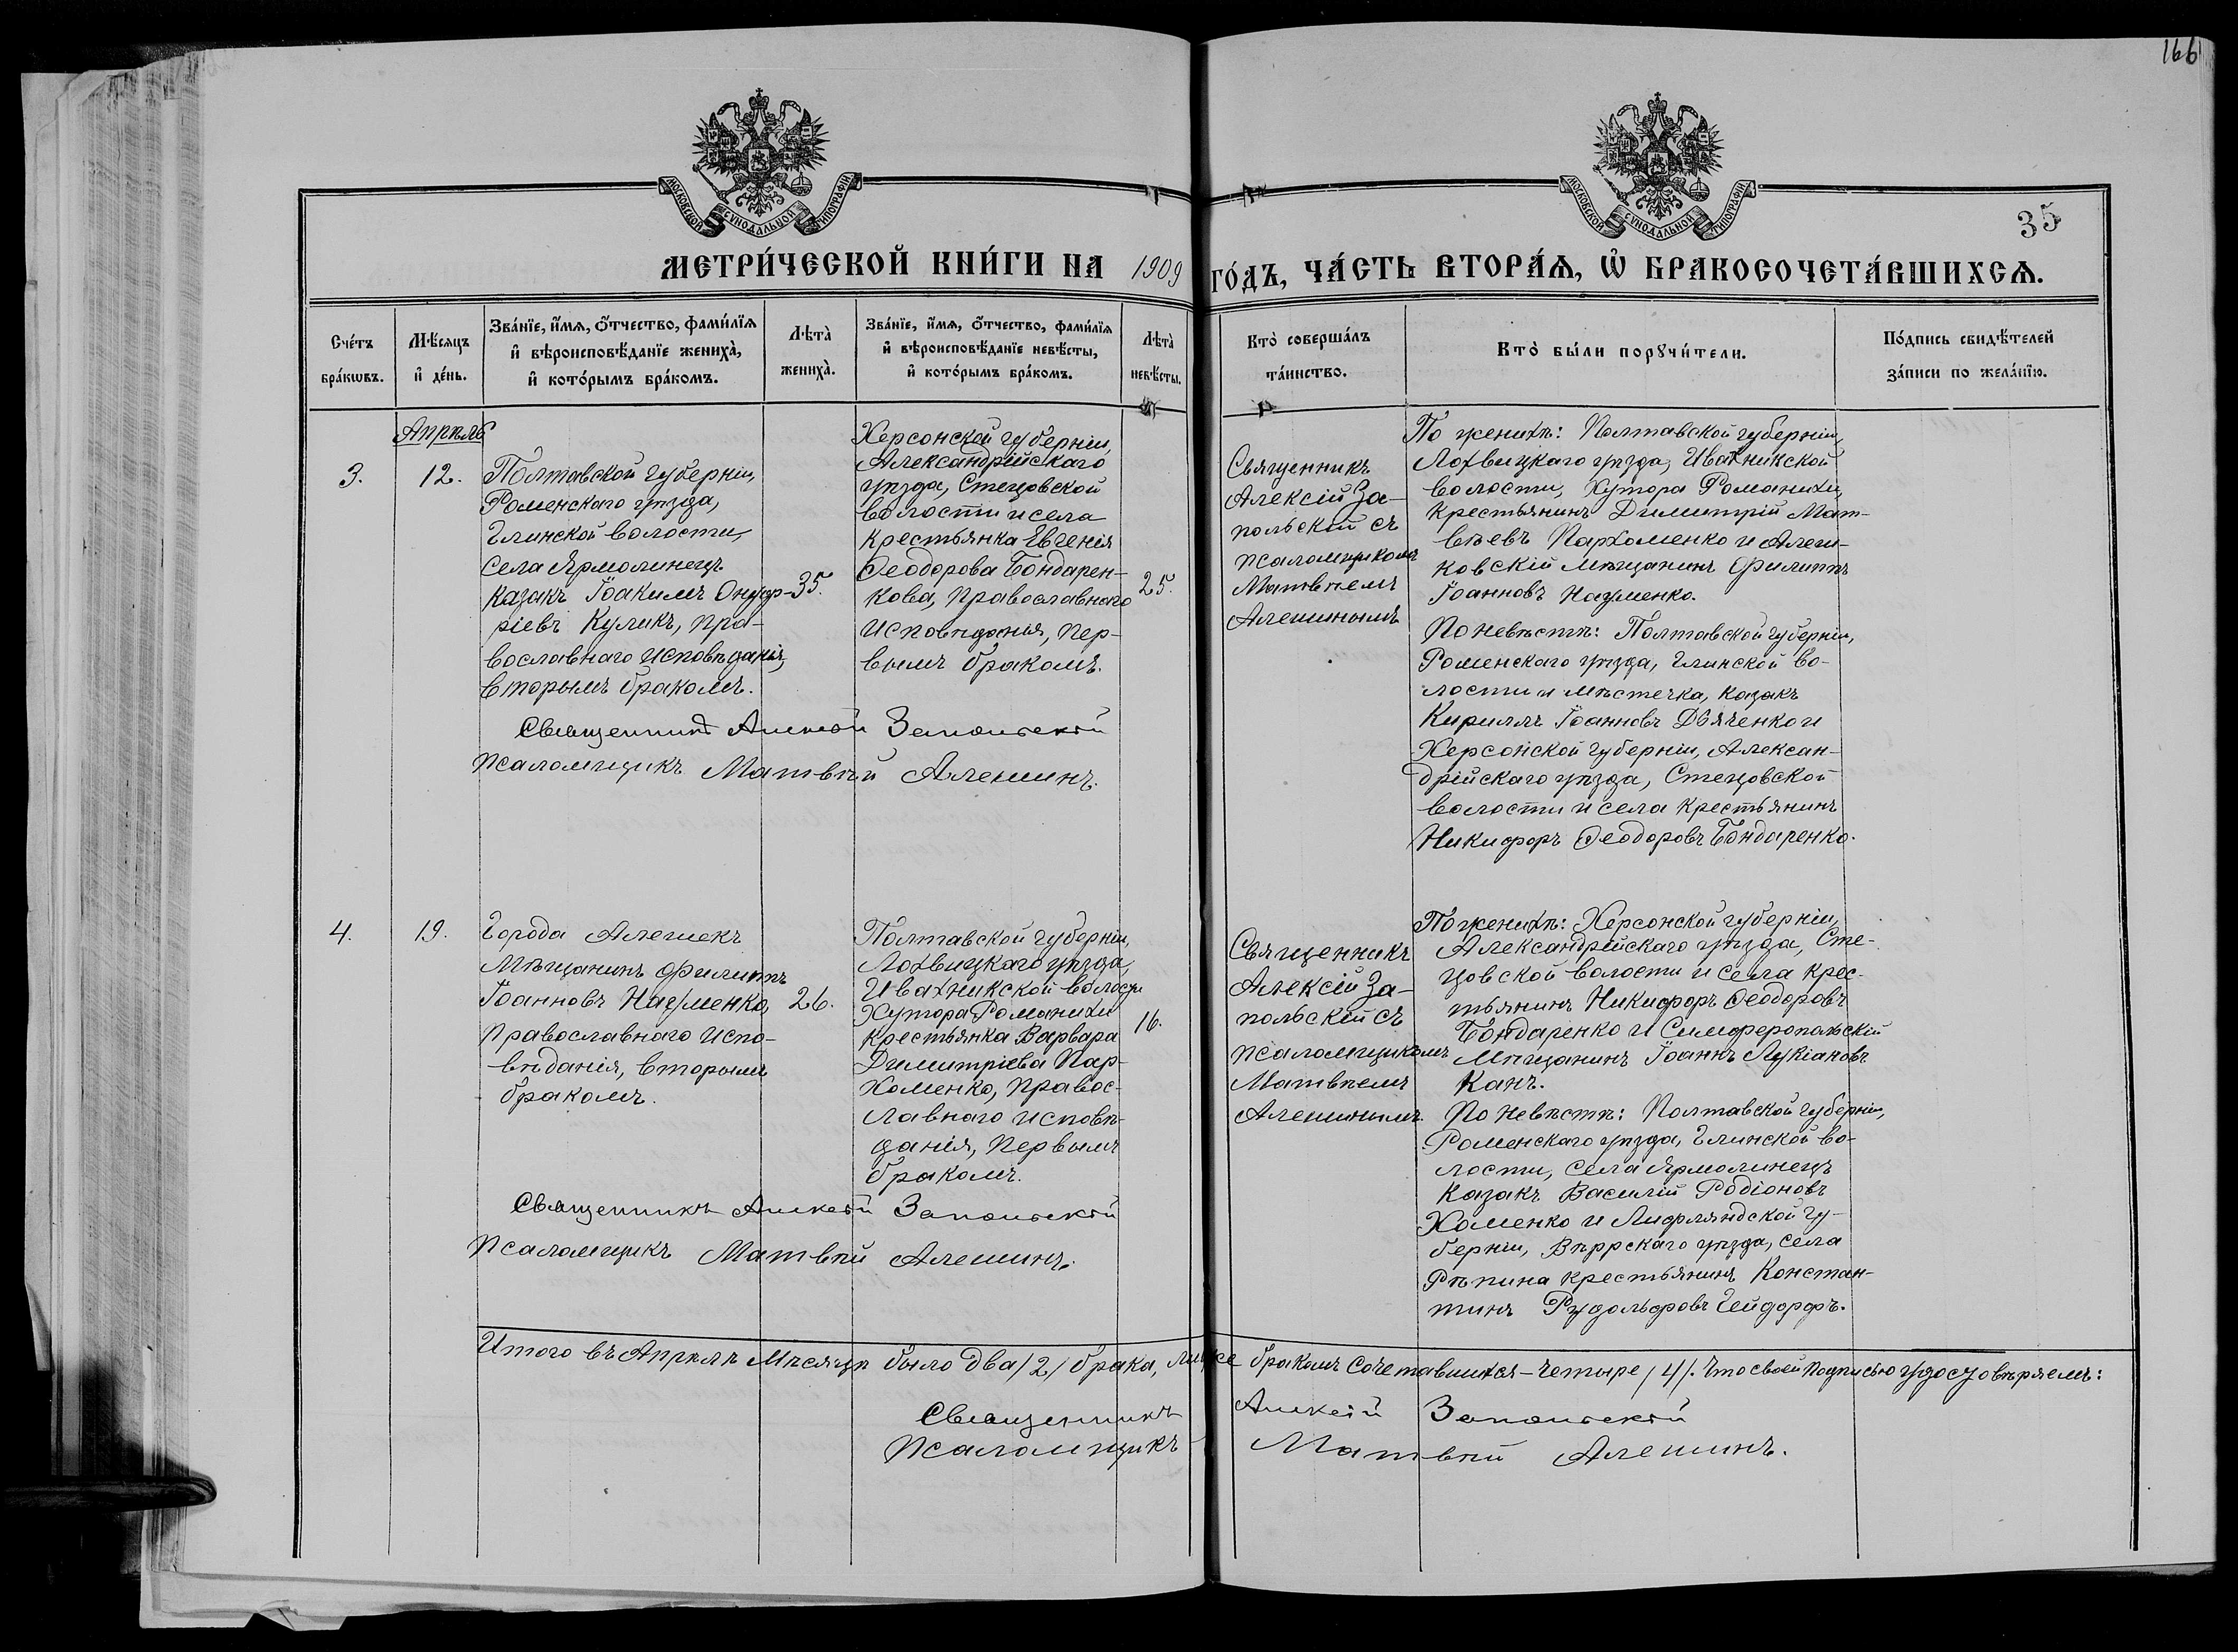 166
МОСКОВСКОЙ СУНОДАЛЬНОЙ ТИПОГРАФІИ
МОСКОВСКОЙ СУНОДАЛЬНОЙ ТИПОГРАФІИ
35
МЕТРИ́ЧЕСКОЙ КНИ́ГИ НА 1909
ГО́ДЪ, ЧА́СТЬ ВТОРА́Ѧ, Ѡ҆ БРАКОСОЧЕТА́ВШИХСѦ.
Сче́тъ
бра́кѡвъ.
Мѣ́сяцъ
и҆ де́нь.
Зва́нїе, и҆́мѧ, ѻ҆́тчество, фами́лїѧ
и҆ вѣроисповѣ́данїе жениха̀,
и҆ кото́рымъ бра́комъ.
Лѣта̀
жениха̀.
Зва́нїе, и҆́мѧ, ѻ҆́тчество, фами́лїѧ
и҆ вѣроисповѣ́данїе невѣ́сты,
и҆ кото́рымъ бра́комъ.
Лѣта̀
невѣ́сты.
Кто̀ соверша́лъ
та́инство.
Кто̀ бы́ли порꙋчи́тели.
По́дпись свидѣ́телей
за́писи по жела́нїю.
Апрѣль
3.
12.
Полтавской губерніи,
Роменскаго уѣзда,
Глинской волости,
села Ярмолинецъ
казакъ Іоакимъ Онуф-
ріевъ Куликъ, пра-
вославнаго исповѣданія,
вторымъ бракомъ.
35.
Херсонской губерніи,
Александрійскаго
уѣзда, Стецовской
волости и села
крестьянка Евгенія
Ѳеодорова Бондарен-
кова, православнаго
исповѣданія, пер-
вымъ бракомъ.
25.
Священникъ Алексій Запольскій
Псаломщикъ Матвѣй Алешинъ.
Священникъ
Алексій За-
польскій съ
псаломщикомъ
Матвѣемъ
Алешинымъ
По женихѣ: Полтавской губерніи,
Лохвицкаго уѣзда, Ивахникской
волости, хутора Романихи,
крестьянинъ Димитрій Мат-
вѣевъ Пархоменко и Алеш-
ковскій мѣщанинъ Филиппъ
Іоанновъ Науменко.
По невѣстѣ: Полтавской губерніи,
Роменскаго уѣзда, Глинской во-
лости и мѣстечка, казакъ
Кириллъ Іоанновъ Дьяченко и
Херсонской губерніи, Алексан-
дрійскаго уѣзда, Стецовской
волости и села крестьянинъ
Никифоръ Ѳеодоровъ Бондаренко.
4.
19.
Города Алешекъ
мѣщанинъ Филиппъ
Іоанновъ Науменко,
православнаго испо-
вѣданія, вторымъ
бракомъ.
26.
Полтавской губерніи,
Лохвицкаго уѣзда,
Ивахникской волости
хутора Романихи
крестьянка Варвара
Димитріева Пар-
хоменко, правос-
лавнаго исповѣ-
данія, первымъ
бракомъ.
16.
Священникъ Алексій Запольскій
Псаломщикъ Матвѣй Алешинъ.
Священникъ
Алексій За-
польскій съ
псаломщикомъ
Матвѣемъ
Алешинымъ.
По женихѣ: Херсонской губерніи,
Александрійскаго уѣзда, Сте-
цовской волости и села крес-
тьянинъ Никифоръ Ѳеодоровъ
Бондаренко и Симферопольскій
мѣщанинъ Іоаннъ Лукіановъ
Канъ.
По невѣстѣ: Полтавской губерніи,
Роменскаго уѣзда, Глинской во-
лости, села Ярмолинецъ
казакъ Василій Родіоновъ
Хоменко и Лифляндской гу-
берніи, Вѣррскаго уѣзда, села
Рѣпина крестьянинъ Констан-
тинъ Рудольфовъ Гейдорфъ.
Итого въ Апрѣлѣ мѣсяцѣ было два /2/ брака, лицъ же бракомъ сочетавшихся – четыре /4/. Что своей подписью удостовѣряемъ:
Священникъ Алексій Запольскій
Псаломщикъ Матвѣй Алешинъ.